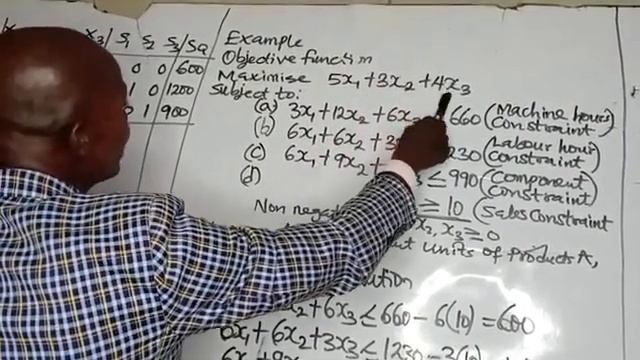 x3/ S1 S2 S3/SQ
0 0 600
1 0 1200
0 1 900
Example
Objective function
Maximise 5x1+3x2+4x3
Subject to:
(a) 3x1+12x2+6x3 660 (Machine hours Constraint)
(b) 6x1+6x2+3 1230 (Labour hour Constraint)
(c) 6x1+9x2+ 3 ≤ 990 (Component Constraint)
(d) ≥ 10 (Sales Constraint
Non nega x2, x3 ≥ 0
units of Products A,
ution
x2+6x3 ≤ 660 - 6(10) = 600
6x1+6x2+3x3 ≤ 1230 - 3(10)
6x1+9x